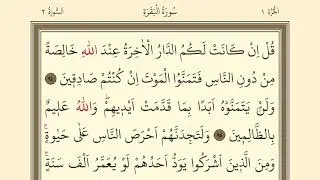 الجزء ١ سورة البقرة السورة ٢
قُلْ اِنْ كَانَتْ لَكُمُ الدَّارُ الْاٰخِرَةُ عِنْدَ اللّٰهِ خَالِصَةً
مِنْ دُونِ النَّاسِ فَتَمَنَّوُا الْمَوْتَ اِنْ كُنْتُمْ صَادِقِينَ ٩٤
وَلَنْ يَتَمَنَّوْهُ اَبَدًا بِمَا قَدَّمَتْ اَيْدِيهِمْ وَاللّٰهُ عَلِيمٌ
بِالظَّالِمِينَ ٩٥ وَلَتَجِدَنَّهُمْ اَحْرَصَ النَّاسِ عَلٰى حَيٰوةٍ
وَمِنَ الَّذِينَ اَشْرَكُوا يَوَدُّ اَحَدُهُمْ لَوْ يُعَمَّرُ اَلْفَ سَنَةٍ